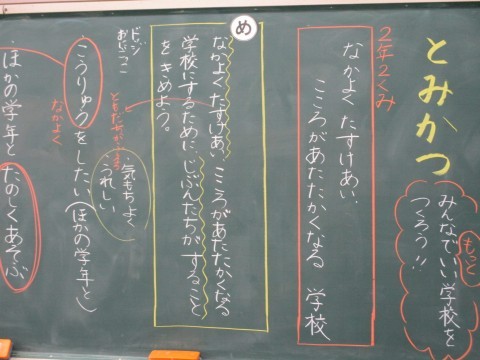 とみかつ
みんなでもっといい学校を
つくろう!!
2年2くみ
なかよく たすけあい、
こころがあたたかくなる 学校
め
なかよく たすけあい、こころがあたたかくなる
学校にするために、じぶんたちが すること
をきめよう。
ドッジ
おにごっこ
ともだちがふえる
・気もちよく
うれしい
・こうりゅうをしたい(ほかの学年と)
なかよく
・ほかの学年と たのしくあそぶ